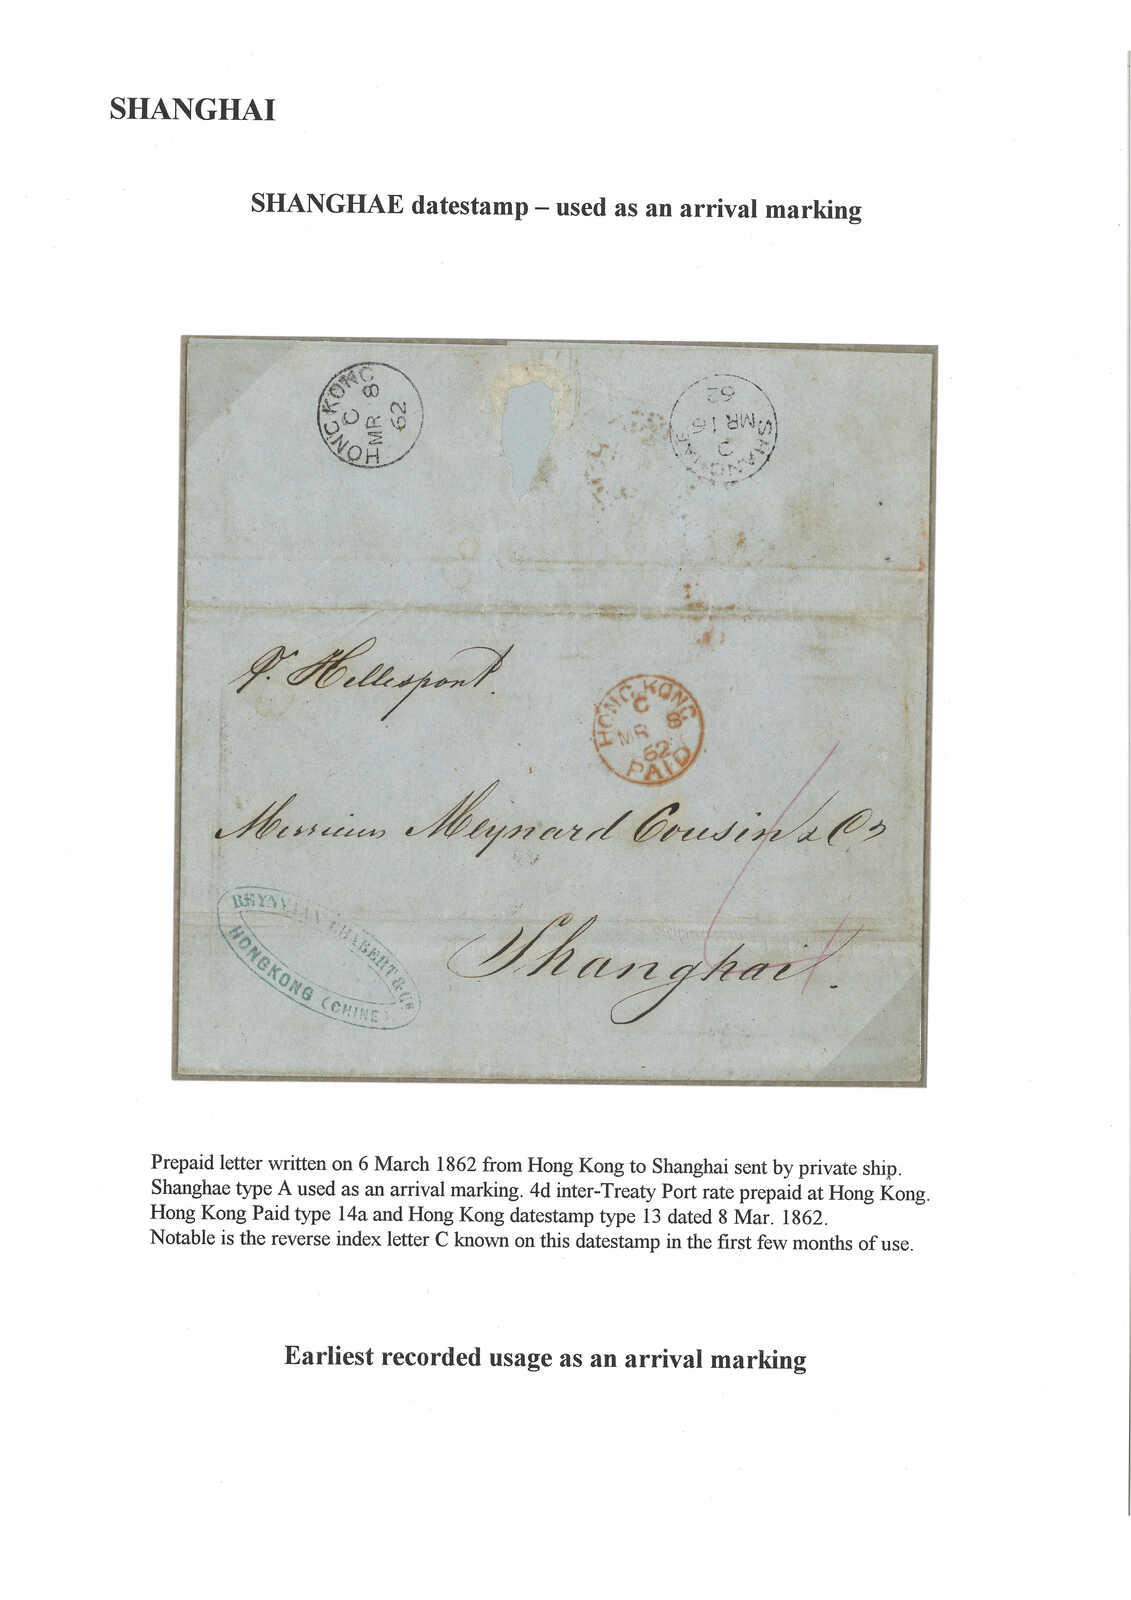 SHANGHAI
SHANGHAE datestamp – used as an arrival marking
HONG KONG
C 8
MR
62
SHANGHAE
C
MR 16
62
Pr. Hellespont.
HONG KONG
C 8
MR
62
PAID
Messieurs Meynard Cousin & Co
Shanghai.
CHABERT & Co
HONGKONG (CHINE)
Prepaid letter written on 6 March 1862 from Hong Kong to Shanghai sent by private ship.
Shanghae type A used as an arrival marking. 4d inter-Treaty Port rate prepaid at Hong Kong.
Hong Kong Paid type 14a and Hong Kong datestamp type 13 dated 8 Mar. 1862.
Notable is the reverse index letter C known on this datestamp in the first few months of use.
Earliest recorded usage as an arrival marking